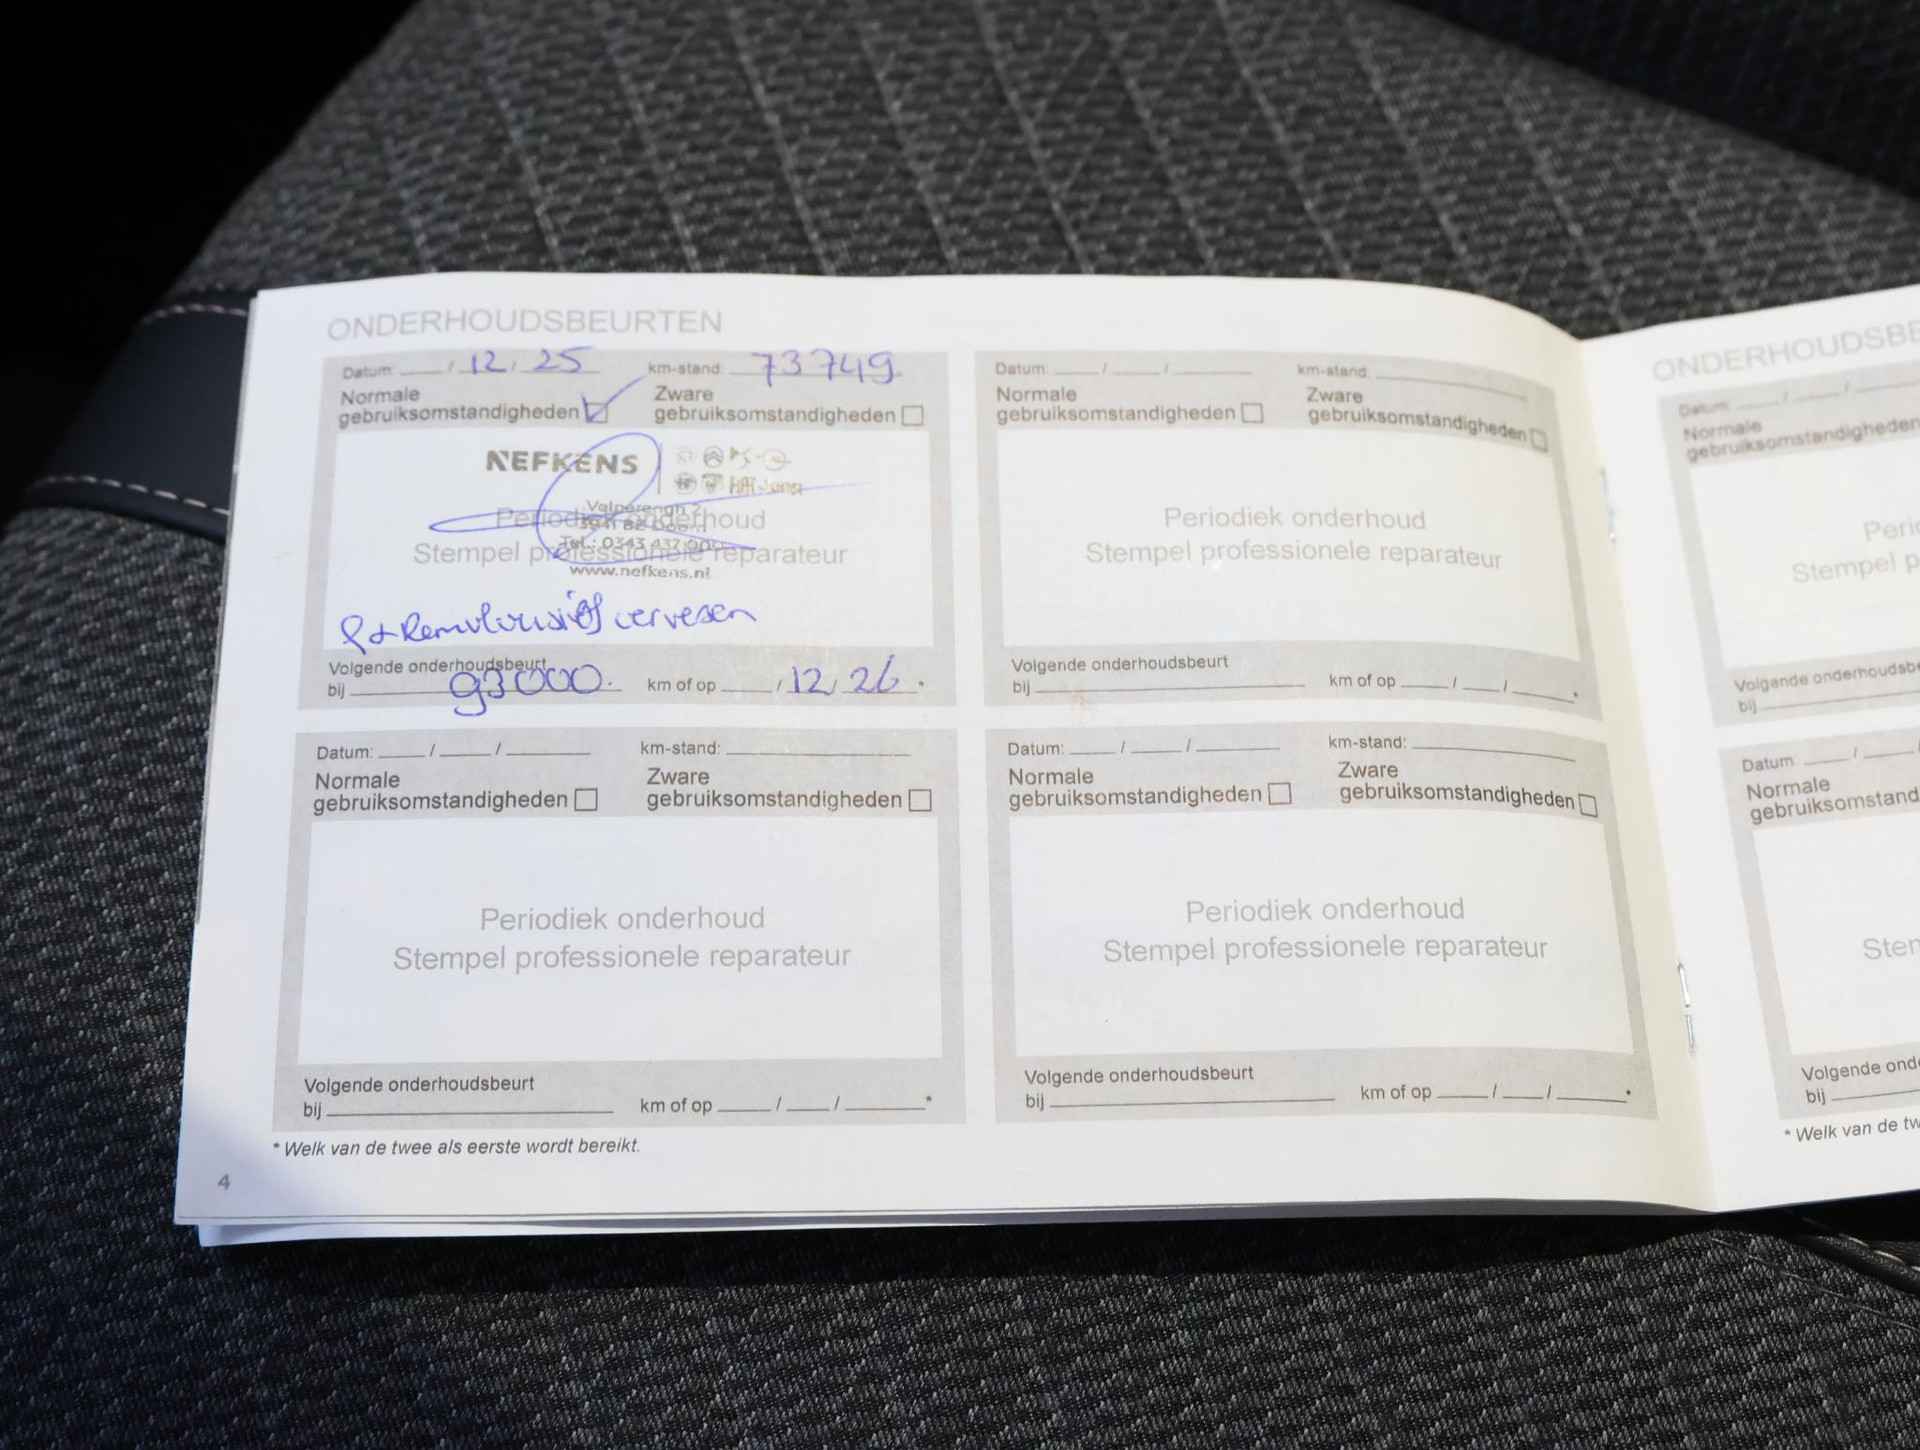 ONDERHOUDSBEURTEN
Datum: ___ / 12 / 25 km-stand: 73749
Normale gebruiksomstandigheden Zware gebruiksomstandigheden
NEFKENS
Periodiek onderhoud
Tel.: 0343 437
Stempel professionele reparateur
www.nefkens.nl
Volgende onderhoudsbeurt
bij 93000. km of op ___ / 12 / 26.
Datum: ___ / ___ / ___ km-stand:
Normale gebruiksomstandigheden Zware gebruiksomstandigheden
Periodiek onderhoud
Stempel professionele reparateur
Volgende onderhoudsbeurt
bij ___ km of op ___ / ___ / ___ *
Datum: ___ / ___ / ___ km-stand:
Normale gebruiksomstandigheden Zware gebruiksomstandigheden
Periodiek onderhoud
Stempel professionele reparateur
Volgende onderhoudsbeurt
bij ___ km of op ___ / ___ / ___ *
Datum: ___ / ___ / ___ km-stand:
Normale gebruiksomstandigheden Zware gebruiksomstandigheden
Periodiek onderhoud
Stempel professionele reparateur
Volgende onderhoudsbeurt
bij ___ km of op ___ / ___ / ___ *
* Welk van de twee als eerste wordt bereikt.
4
ONDERHOUDSBE
Datum: ___ / ___ /
Normale
gebruiksomstandigheden
Stempel p
Volgende onderhoudsb
bij
Datum: ___ /
Normale
gebruiksomstand
Sten
Volgende ond
bij
* Welk van de tw